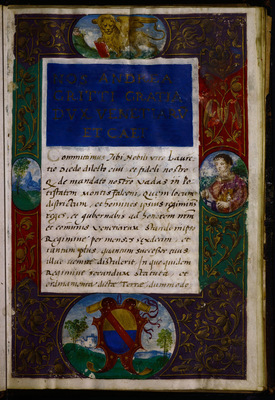 NOS ANDREAS
GRITI DEI GRATIA
DUX VENETIAR
ET CAET
Committimus Tibi Nobili viro Laure
tio dilecto civi et fideli nostro
q de mandato nostro vadas in Po
testatem Montis falconi
districtum, et homines ipsius regiminis
reges, et gubernabis ad honorem nrm
et comunis Venetiarum Stando in ipso
Regimine per menses sexdecim et
tantum plus quantum successor tuus
illuc venire distulerit. In quo quidem
Regimine servandum statuta et
ordinamenta dictae Terrae dummodo